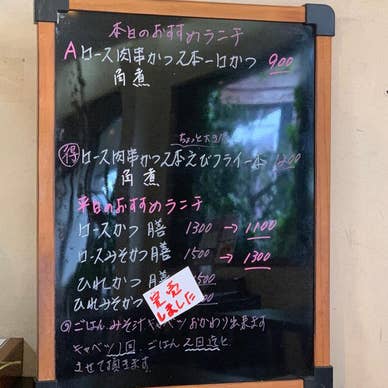 本日のおすすめランチ
A ロース肉串かつ2本一口かつ 900
角煮
ちょっと大き目
得 ロース肉串かつ2本えびフライ一本 1200
角煮
平日のおすすめランチ
ロースかつ膳 1300→1100
ロースみそかつ膳 1500→1300
ひれかつ膳 1500
ひれみそかつ
完売しました
◎ごはん、みそ汁、キャベツおかわり出来ます
キャベツ1回、ごはん2回迄と
させて頂きます